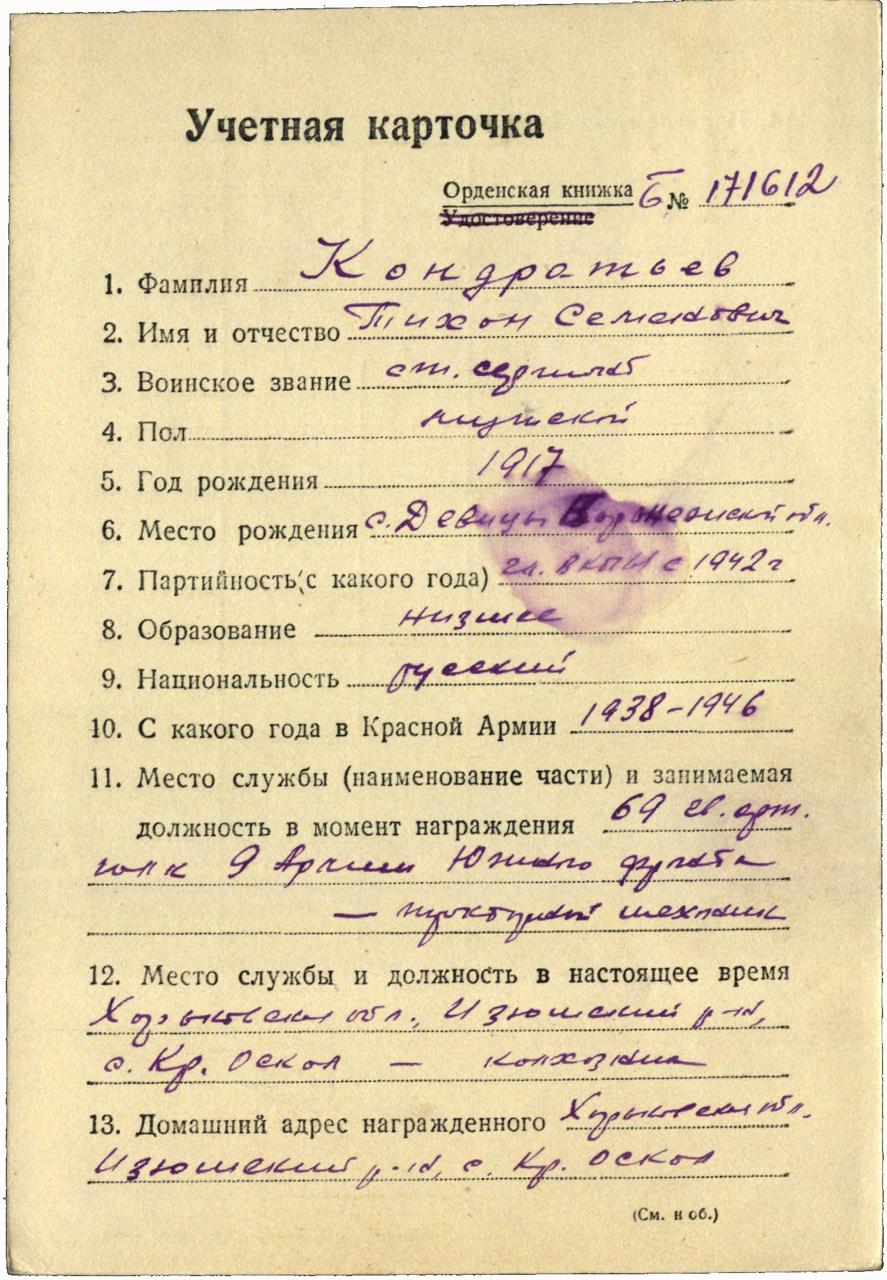 Учетная карточка
Орденская книжка Б № 171612
Удостоверение
1. Фамилия Кондратьев
2. Имя и отчество Тихон Семенович
3. Воинское звание ст. сержант
4. Пол мужской
5. Год рождения 1917
6. Место рождения с. Девицы Воронежской обл.
7. Партийность (с какого года) чл. ВКП(б) с 1942 г
8. Образование низшее
9. Национальность русский
10. С какого года в Красной Армии 1938-1946
11. Место службы (наименование части) и занимаемая
должность в момент награждения 69 гв. арт.
полк 9 Армии Южного фронта
— тракторный механик
12. Место службы и должность в настоящее время
Харьковская обл., Изюмский р-н,
с. Кр. Оскол — колхозник
13. Домашний адрес награжденного Харьковская обл.
Изюмский р-н, с. Кр. Оскол
(См. н об.)